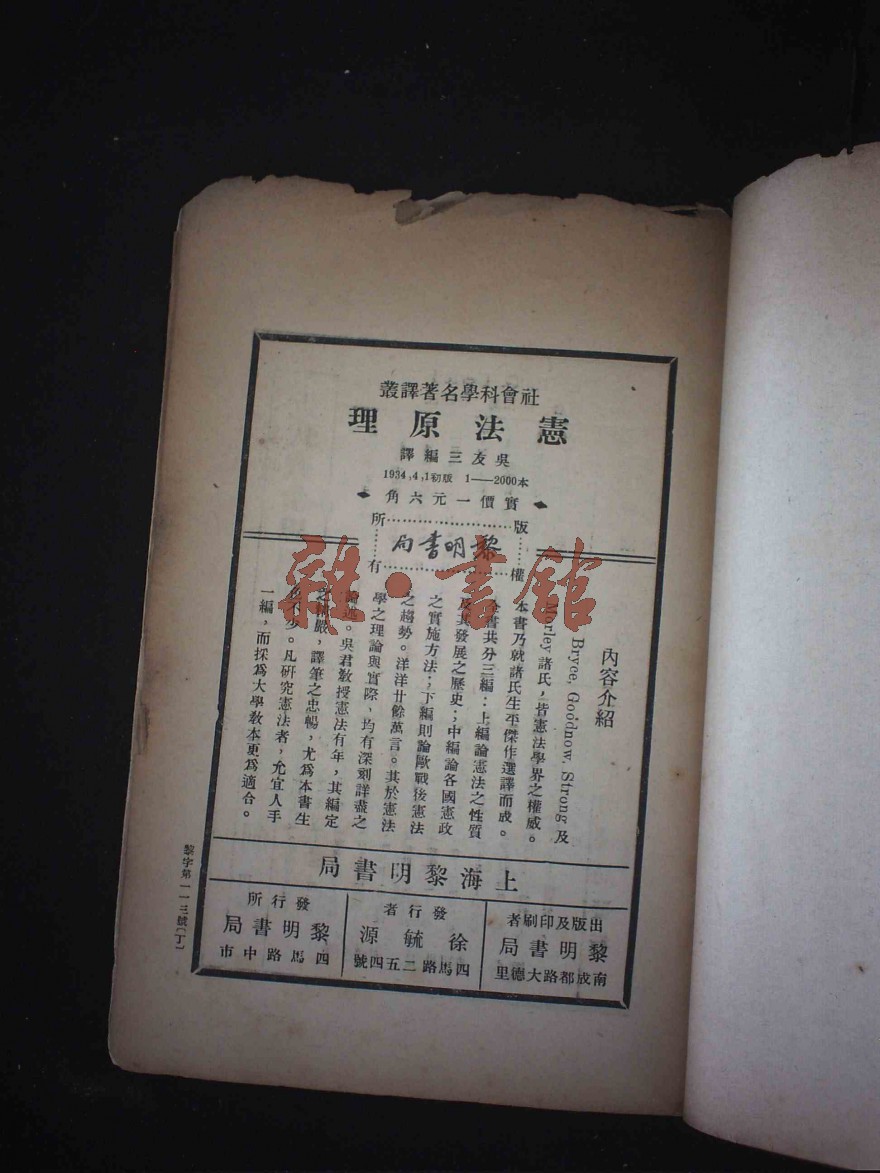 社會科學名著譯叢
憲法原理
吳友三編譯
1934,4,1初版 1——2000本
實價一元六角
版權所有
黎明書局
內容介紹
Bryce, Goodnow, Strong 及
Morley諸氏，皆憲法學界之權威。
本書乃就諸氏生平傑作選譯而成。
全書共分三編：上編論憲法之性質
及其發展之歷史；中編論各國憲政
之實施方法；下編則論歐戰後憲法
之趨勢。洋洋廿餘萬言。其於憲法
學之理論與實際、均有深刻詳盡之
論述。吳君教授憲法有年，其編定
之精嚴，譯筆之忠暢，尤爲本書生
色不少。凡研究憲法者，允宜人手
一編，而採爲大學教本更爲適合。
上海黎明書局
出版及印刷者
黎明書局
南成都路大德里
發行者
徐毓源
四馬路二五四號
發行所
黎明書局
四馬路中市
黎字第一一三號（丁）
雜·書館